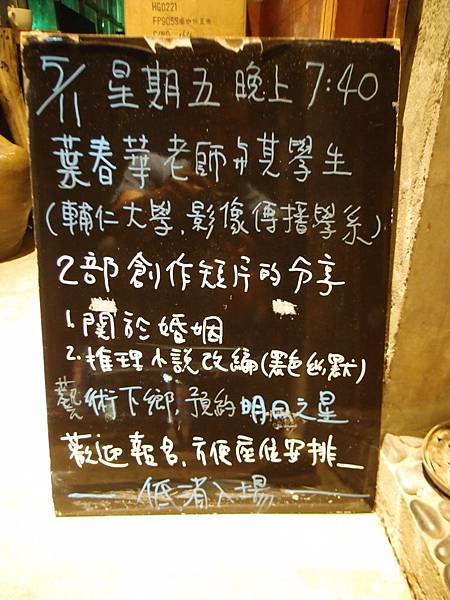 HG0221
5/11 星期五 晚上 7:40
葉春華老師与其學生
(輔仁大學.影像傳播學系)
2部創作短片的分享
1. 関於婚姻
2. 推理小說改編(黑色幽默)
藝術下鄉.預約明日之星
歡迎報名.方便座位安排
低消入場